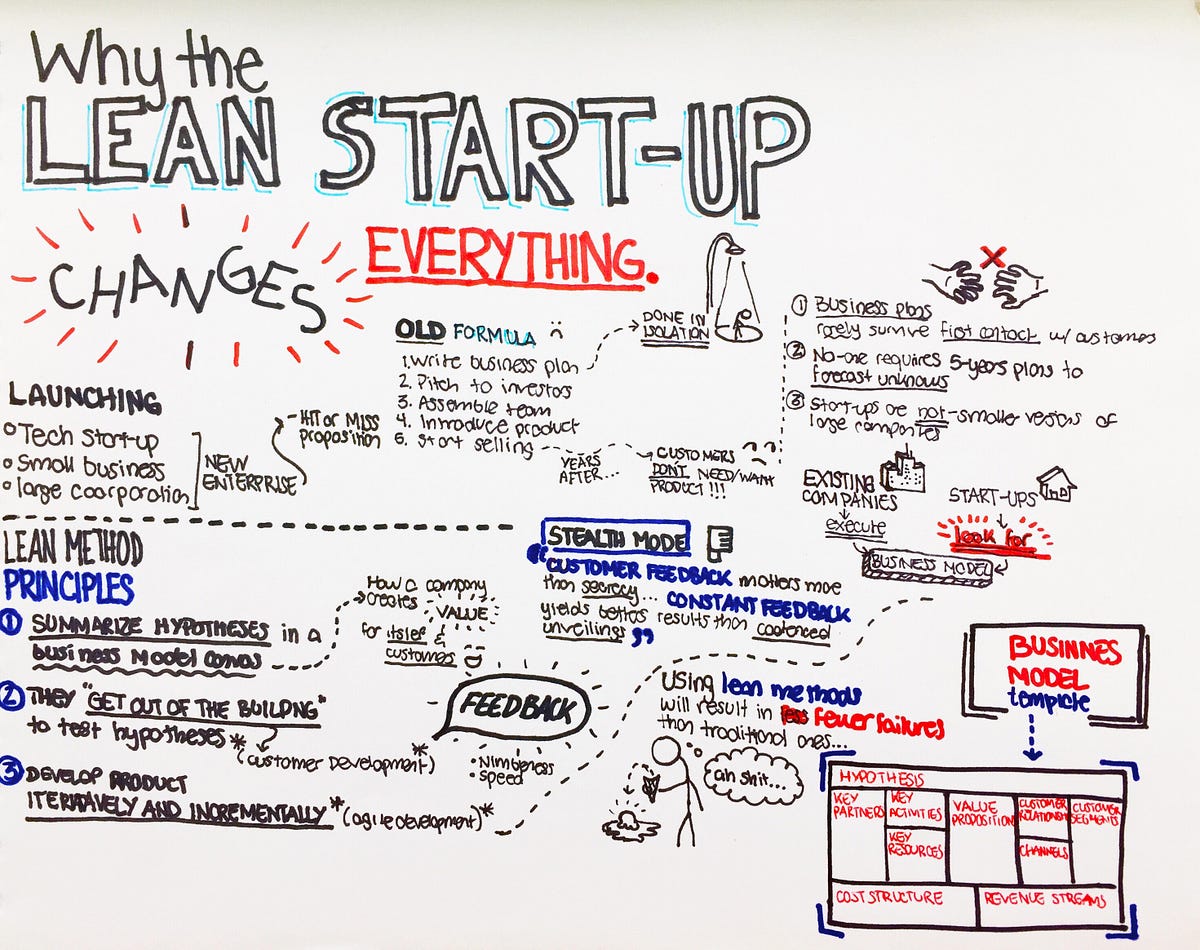 Why the
LEAN START-UP
CHANGES
EVERYTHING.
LAUNCHING
Tech start-up
Small business
large coorporation
NEW
ENTERPRISE
HIT or MISS
proposition
OLD FORMULA
1. Write business plan
2. Pitch to investors
3. Assemble team
4. Introduce product
5. start selling
DONE IN
ISOLATION
YEARS
AFTER...
CUSTOMERS
DON'T NEED/WANT
PRODUCT!!!
1 Business plans
rarely survive first contact w/ customers
2 No-one requires 5-years plans to
forecast unknowns
3 Start-ups are not smaller versions of
large companies
EXISTING
COMPANIES
execute
START-UPS
look for
BUSINESS MODEL
LEAN METHOD
PRINCIPLES
1 SUMMARIZE HYPOTHESES in a
business Model canvas
How a company
creates VALUE
for itslef &
customers
2 THEY "GET OUT OF THE BUILDNG"
to test hypotheses*
(customer Development)*
3 DEVELOP PRODUCT
ITERATIVELY AND INCREMENTALLY*
(agile development)*
FEEDBACK
• Nimbleness
• speed
STEALTH MODE
"CUSTOMER FEEDBACK matters more
than secrecy... CONSTANT FEEDBACK
yields better results than cadenced
unveilings"
Using lean methods
will result in less fewer failures
than traditional ones...
ah shit...
BUSINNES
MODEL
template
HYPOTHESIS
KEY
PARTNERS
KEY
ACTIVITIES
KEY
RESOURCES
VALUE
PROPOSITION
CUSTOMER
RELATIONSHIP
CHANNELS
CUSTOMER
SEGMENTS
COST STRUCTURE
REVENUE STREAMS